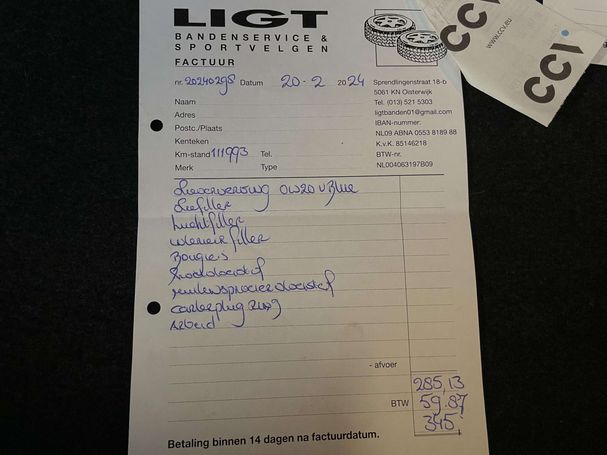 LIGT
BANDENSERVICE &
SPORTVELGEN
FACTUUR
nr. 20240298 Datum 20-2 2024
Naam
Adres
Postc./Plaats
Kenteken
Km-stand 111993 Tel.
Merk Type
Sprendlingenstraat 18-b
5061 KN Oisterwijk
Tel. (013) 521 5303
ligtbanden01@gmail.com
IBAN-nummer:
NL09 ABNA 0553 8189 88
K.v.K. 85146218
BTW-nr.
NL004063197B09
CCV
www.ccv.eu
CCV
0W20
Luchtfilter
Bougies
carterplug ring
Arbeid
- afvoer
285,13
BTW 59.87
345,
Betaling binnen 14 dagen na factuurdatum.